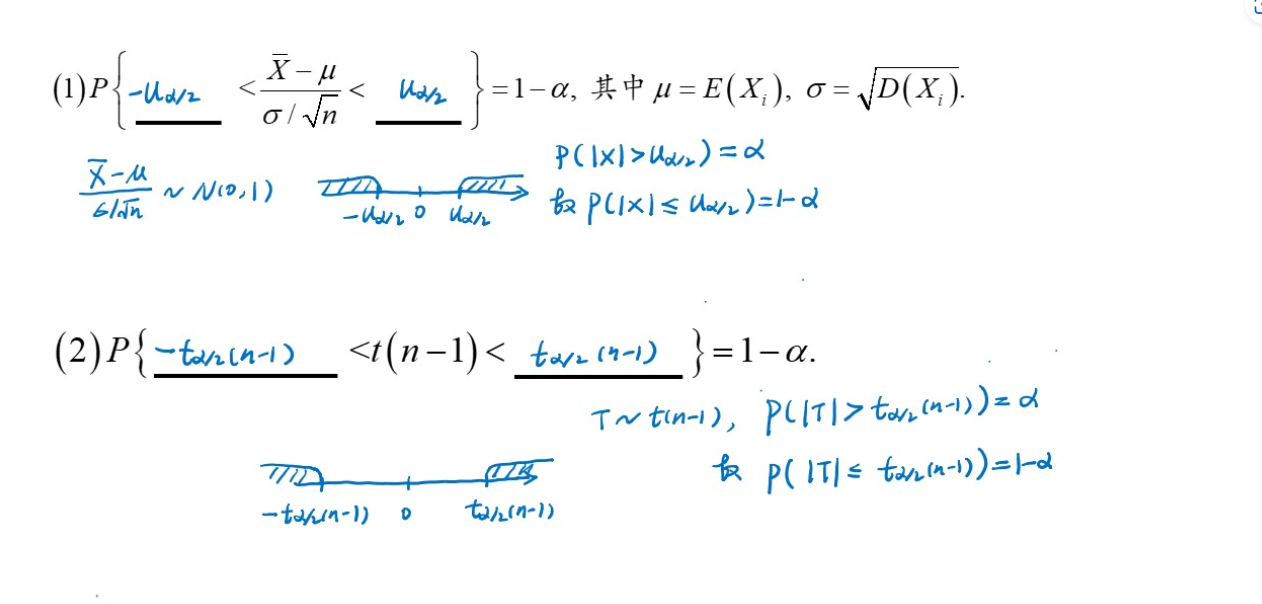 (1) P{ -u_{α/2} < (X̄-μ)/(σ/√n) < u_{α/2} } = 1-α, 其中 μ = E(X_i), σ = √D(X_i).
P(|X|>u_{α/2})=α
(X̄-μ)/(σ/√n) ~ N(0,1)
-u_{α/2} 0 u_{α/2}
故 P(|X|≤u_{α/2})=1-α
(2) P{ -t_{α/2}(n-1) < t(n-1) < t_{α/2}(n-1) } = 1-α.
T~t(n-1), P(|T|>t_{α/2}(n-1))=α
故 P(|T|≤t_{α/2}(n-1))=1-α
-t_{α/2}(n-1) 0 t_{α/2}(n-1)